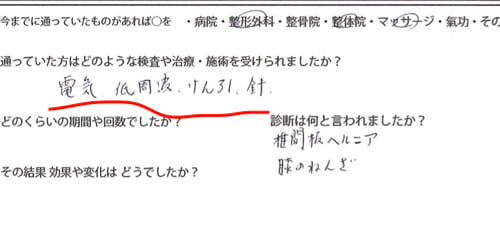 今までに通っていたものがあれば○を ・病院・整形外科・整骨院・整体院・マッサージ・氣功・その
通っていた方はどのような検査や治療・施術を受けられましたか？
電気、低周波、けん引、針、
どのくらいの期間や回数でしたか？ 診断は何と言われましたか？
椎間板ヘルニア
その結果 効果や変化は どうでしたか？ 膝のねんざ